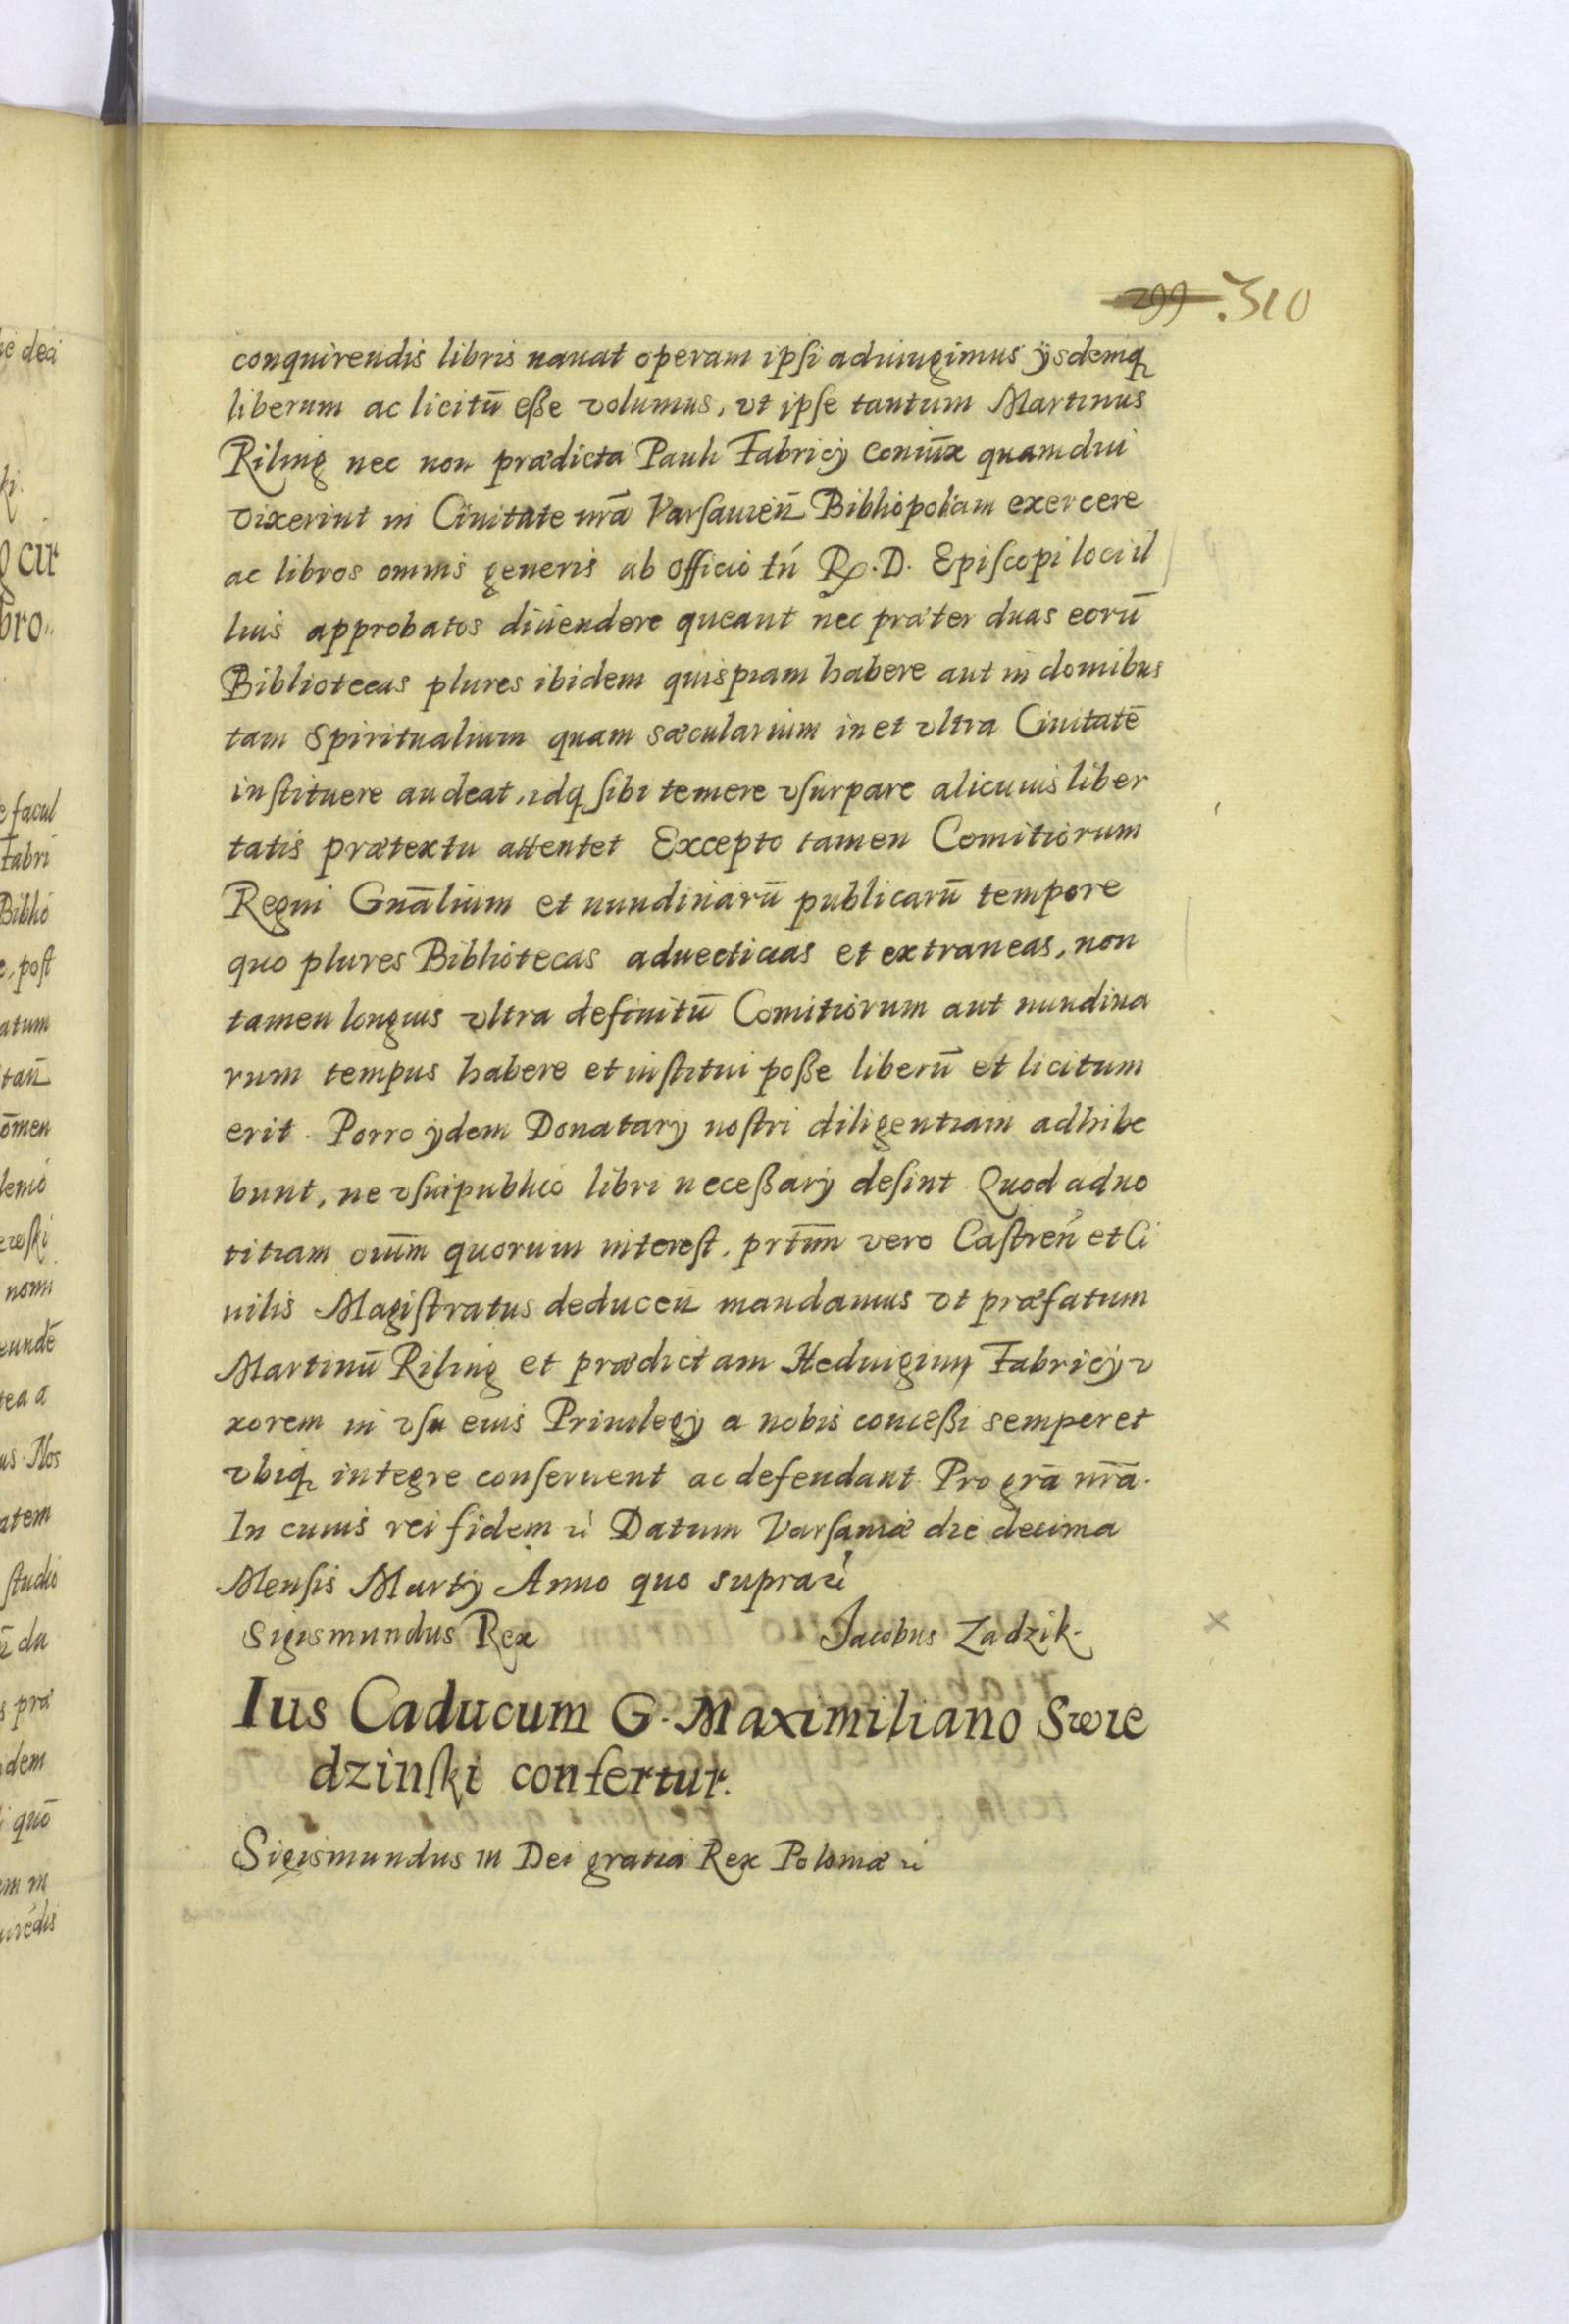 299 310
conquirendis libris nauat operam ipsi adiungimus ijsdemq
liberum ac licitū eße volumus, vt ipse tantum Martinus
Riling nec non prædicta Pauli Fabricij Coniūx quamdiu
vixerint in Ciuitate nrā Varsauien̄ Bibliopoliam exercere
ac libros omnis generis ab officio tń Rx. D. Episcopi loci il
lius approbatos diuendere queant nec præter duas eorū
Bibliotecas plures ibidem quispiam habere aut in domibus
tam Spiritualium quam sæcularium in et vltra Ciuitatē
instituere audeat, idq sibi temere vsurpare alicuius liber
tatis prætextu attentet Excepto tamen Comitiorum
Regni Gnālium et nundinarū publicarū tempore
quo plures Bibliotecas aduecticias et extraneas, non
tamen longius vltra definitū Comitiorum aut nundina
rum tempus habere et institui poße liberū et licitum
erit. Porro ijdem Donatarij nostri diligentiam adhibe
bunt, ne vsui publico libri neceßarij desint Quod ad no
titiam oīum quorum interest, prtīm vero Castreń et Ci
uilis Magistratus deducen̄ mandamus vt præfatum
Martinū Riling et prædictam Heduigim Fabricij v
xorem in vsu eius Priuilegij a nobis conceßi semper et
vbiq integre conseruent ac defendant. Pro grā nrā.
In cuius rei fidem ɛ Datum Varsauiæ die decima
Mensis Martij Anno quo supra ɛ
Sigismundus Rex Jacobus Zadzik.
Ius Caducum G. Maximiliano Swie
dzinski confertur.
Sigismundus III Dei gratia Rex Poloniæ ɛ